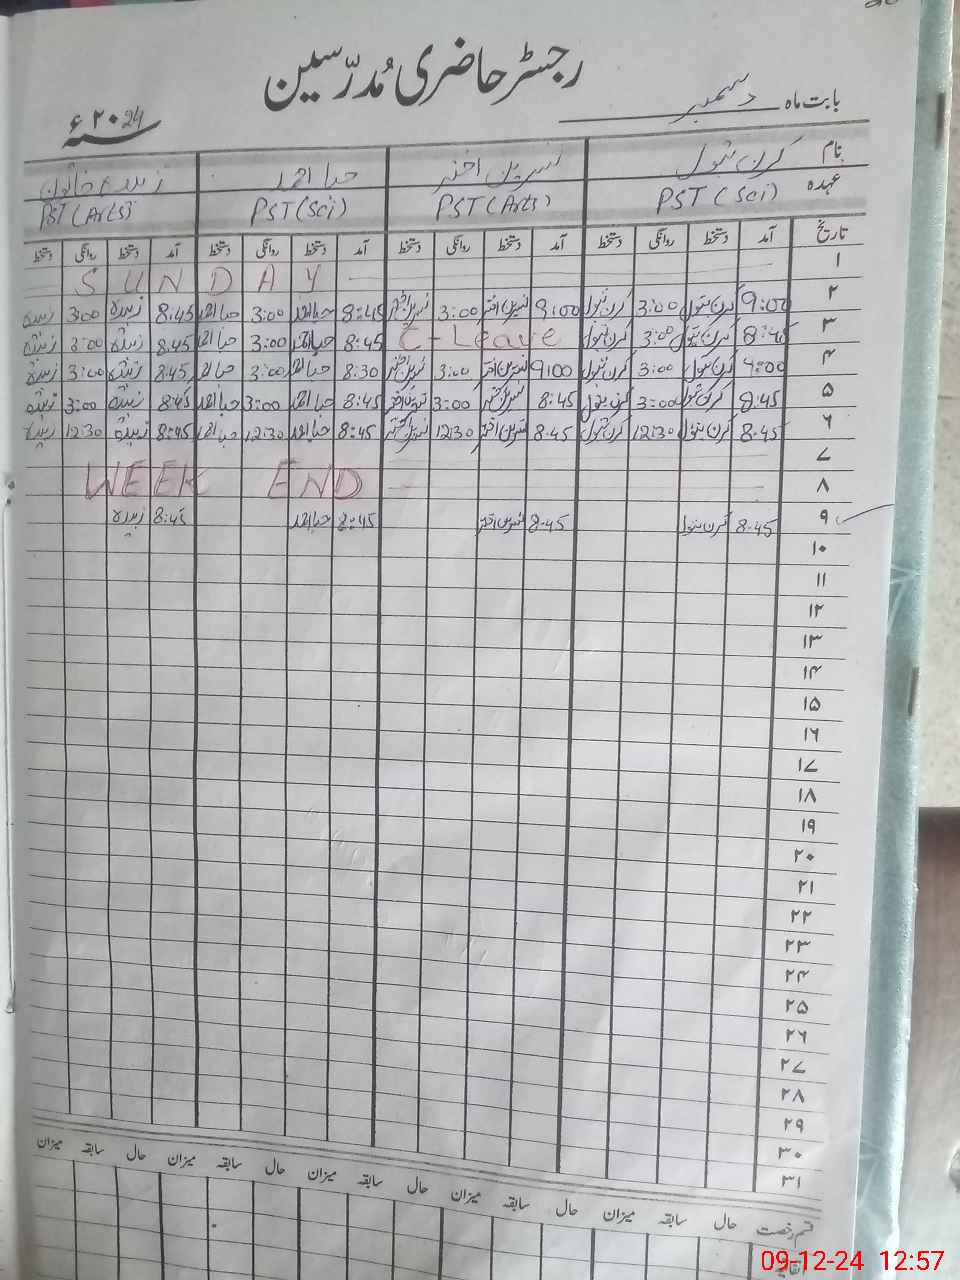 رجسٹر حاضری مُدرّسین
بابت ماہ دسمبر ۲۰24ء
نام کرن بتول نسرین اختر حبا احمد زبیدہ خاتون
عہدہ PST (Sci) PST (Arts) PST (Sci) PST (Arts)
تاریخ آمد دستخط روانگی دستخط آمد دستخط روانگی دستخط آمد دستخط روانگی دستخط آمد دستخط روانگی دستخط
۱ SUNDAY
۲ 9:00 کرن بتول 3:00 کرن بتول 9:00 نسرین اختر 3:00 نسرین اختر 8:45 حبا احمد 3:00 حبا احمد 8:45 زبیدہ 3:00 زبیدہ
۳ 8:45 کرن بتول 3:00 کرن بتول C-Leave 8:45 حبا احمد 3:00 حبا احمد 8:45 زبیدہ 3:00 زبیدہ
۴ کرن بتول 3:00 کرن بتول 9:00 نسرین اختر 3:00 نسرین اختر 8:30 حبا احمد 3:00 حبا احمد 8:45 زبیدہ 3:00 زبیدہ
۵ 8:45 کرن بتول 3:00 کرن بتول 8:45 نسرین اختر 3:00 نسرین اختر 8:45 حبا احمد 3:00 حبا احمد 8:45 زبیدہ 3:00 زبیدہ
۶ 8:45 کرن بتول 12:30 کرن بتول 8:45 نسرین اختر 12:30 نسرین اختر 8:45 حبا احمد 12:30 حبا احمد 8:45 زبیدہ 12:30 زبیدہ
۷
۸ WEEK END
۹ 8:45 کرن بتول 8:45 نسرین اختر 8:45 حبا احمد 8:45 زبیدہ
۱۰
۱۱
۱۲
۱۳
۱۴
۱۵
۱۶
۱۷
۱۸
۱۹
۲۰
۲۱
۲۲
۲۳
۲۴
۲۵
۲۶
۲۷
۲۸
۲۹
۳۰
۳۱
قسم رخصت حال سابقہ میزان حال سابقہ میزان حال سابقہ میزان حال سابقہ میزان
09-12-24 12:57